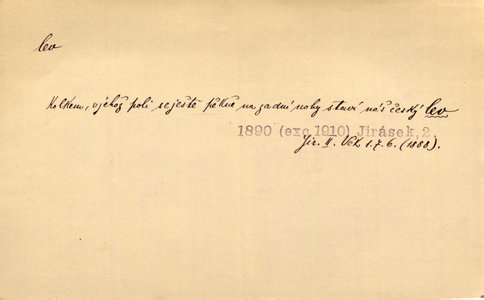 lev
Kolkem, v jehož poli se ještě pěkně na zadní nohy staví náš český lev
1890 (exc 1910) Jirásek, 2.
Jir. II. Věk 1. 7. 6. (1888).